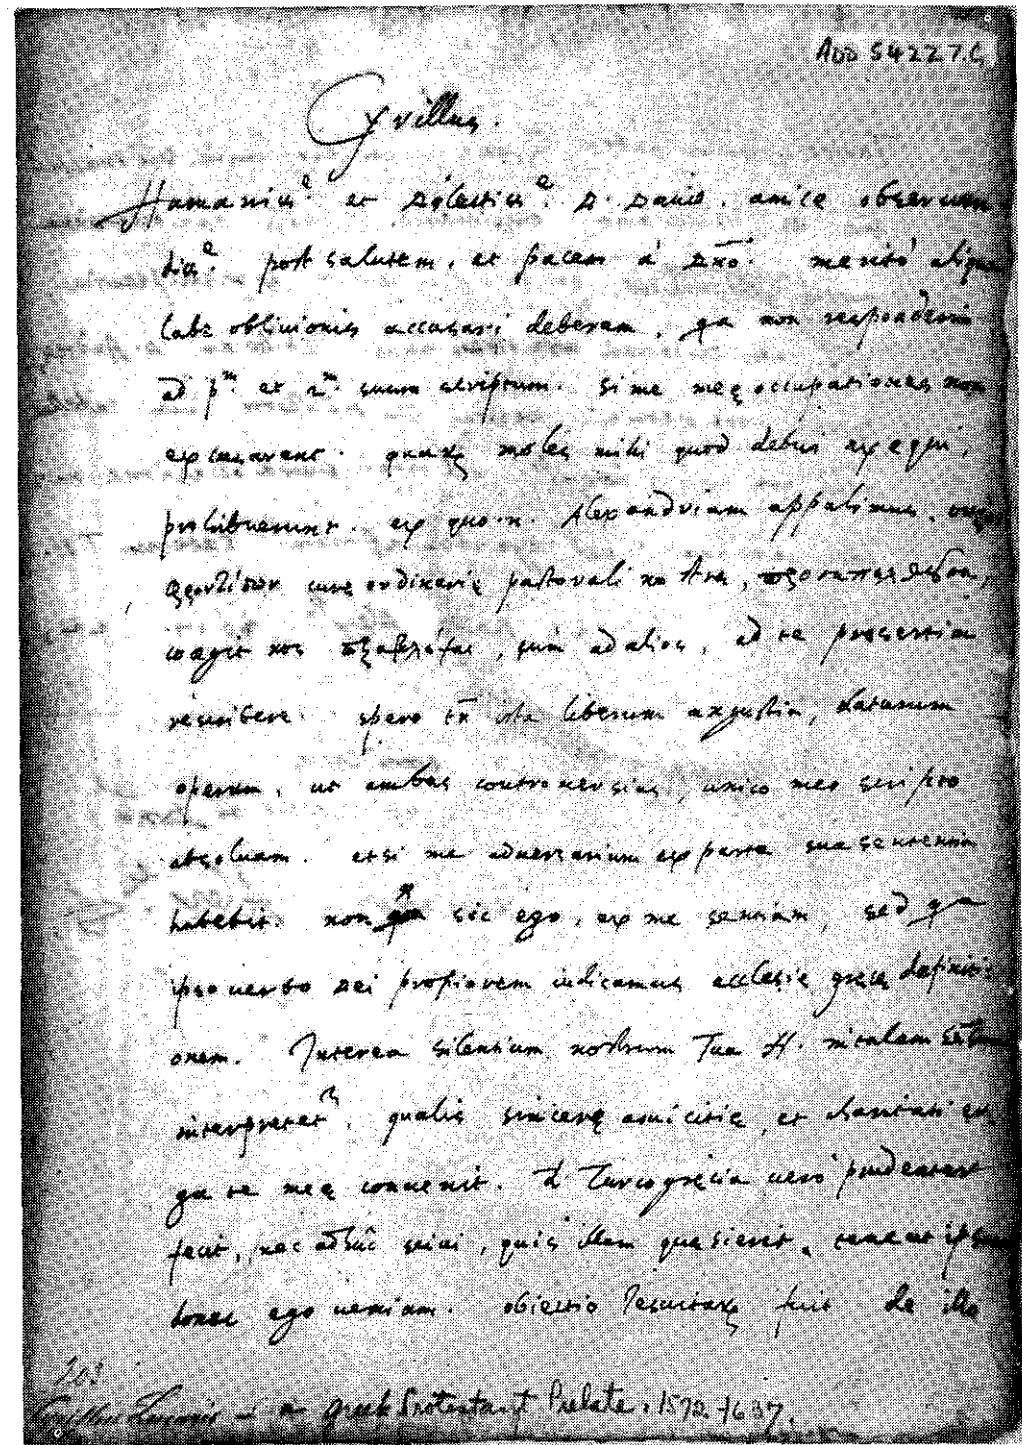 Add 54227.C
Cyrillus.
Humaniss.e et D. David. amice observan
diss.e post salutem, et pacem à Dno. meritò
labe oblivionis accusari deberem, qa non responderim
ad p.m et 2.m suum scriptum. si me meę occupationes non
excusarent. moles mihi quod debui exequi,
prohibuerunt. ex quo n. Alexandriam appulimus,
curę ordinarię pastorali
coagit nos, quin ad alios, ad te presertim
rescribere. spero tñ ista liberum angustia, daturum
operam, ut ambas controversias, unico meo scripto
absoluam. etsi me adversarium ex parte sua sententia
habebit. non qa sic ego, ex me sentiam, sed qa
ipso verbo Dei propiorem iudicamus ecclesię gręcę definiti
onem. Interea silentium nostrum Tua H.
interpretet, qualis sincerę amicitię, et charitati
ga te meę convenit. Turcogręcia verò prudenter
fecit, nec adhuc scivi, quis illam quesierit,
donec ego veniam. obiectio fuit de illa
203
Cyrillus Lucaris - a Greek Protestant Prelate. 1572-1637.